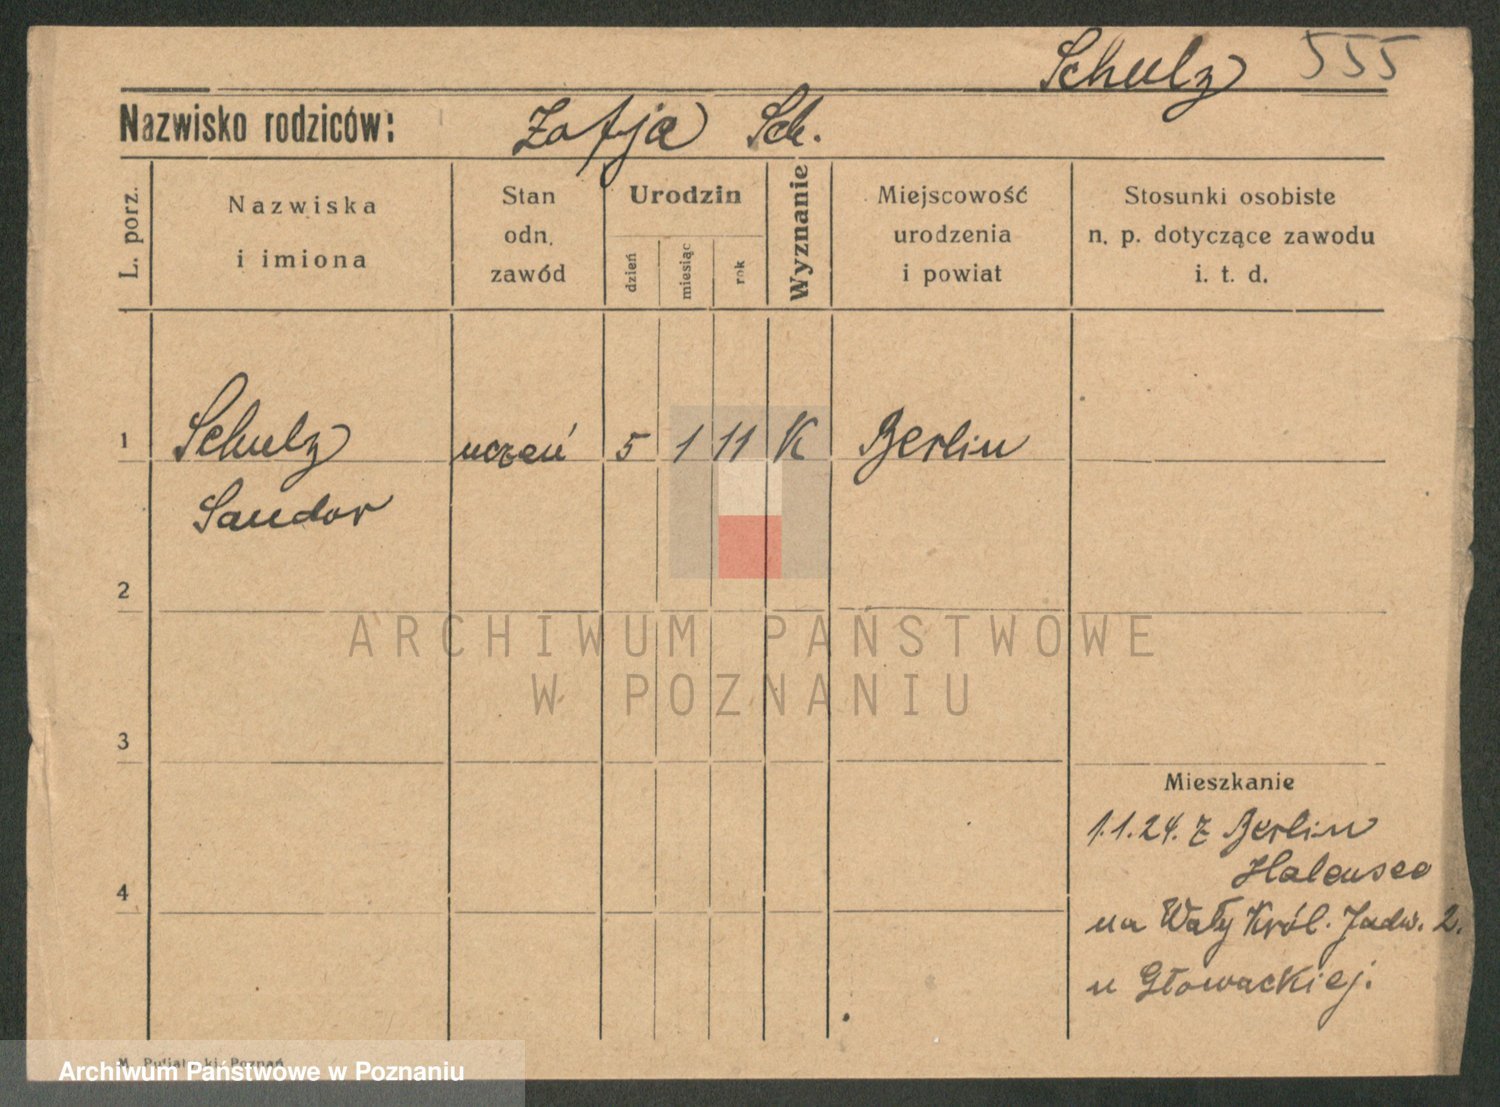 Schulz 555
Nazwisko rodziców: Zofja Sch.
L. porz.
Nazwiska
i imiona
Stan
odn.
zawód
Urodzin
dzień
miesiąc
rok
Wyznanie
Miejscowość
urodzenia
i powiat
Stosunki osobiste
n. p. dotyczące zawodu
i. t. d.
1 Schulz uczeń 5 1 11 K Berlin
Sandor
2
ARCHIWUM PAŃSTWOWE
W POZNANIU
3
Mieszkanie
1.1.24. z Berlin
Halensee
4
na Wały Król. Jadw. 2.
u Głowackiej.
Poznań
Archiwum Państwowe w Poznaniu